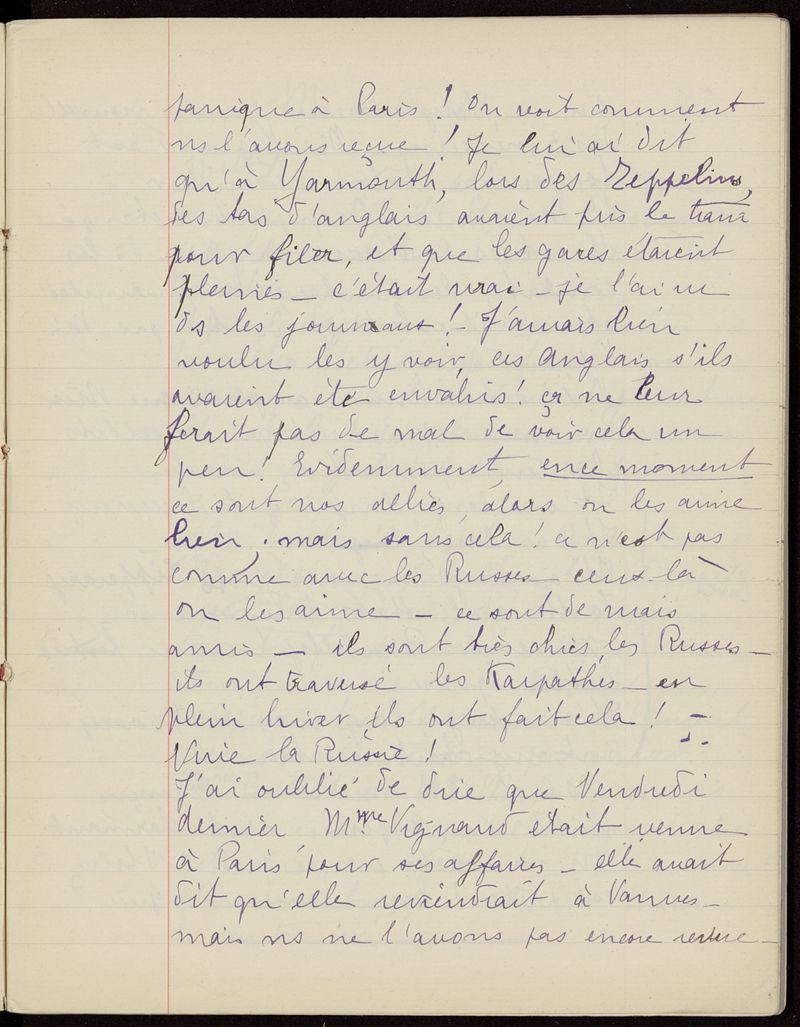 panique à Paris ! On voit comment
ns l'avons reçue ! Je lui ai dit
qu'à Yarmouth, lors des Zeppelins,
des tas d'anglais avaient pris le train
pour filer, et que les gares étaient
pleines – c'était vrai – je l'ai lu
ds les journaux ! – J'aurais bien
voulu les y voir, ces Anglais, s'ils
avaient été envahis ! ça ne leur
ferait pas de mal de voir cela un
peu ! Evidemment, en ce moment
ce sont nos alliés, alors on les aime
bien, mais sans cela ! ce n'est pas
comme avec les Russes – ceux-là
on les aime – ce sont de vrais
amis – ils sont très chics, les Russes –
ils ont traversé les Karpathes – en
plein hiver ils ont fait cela ! –
Vive la Russie !
J'ai oublié de dire que Vendredi
dernier Mme Vignaud était venue
à Paris pour ses affaires – elle avait
dit qu'elle reviendrait à Vanves –
mais ns ne l'avons pas encore revue –